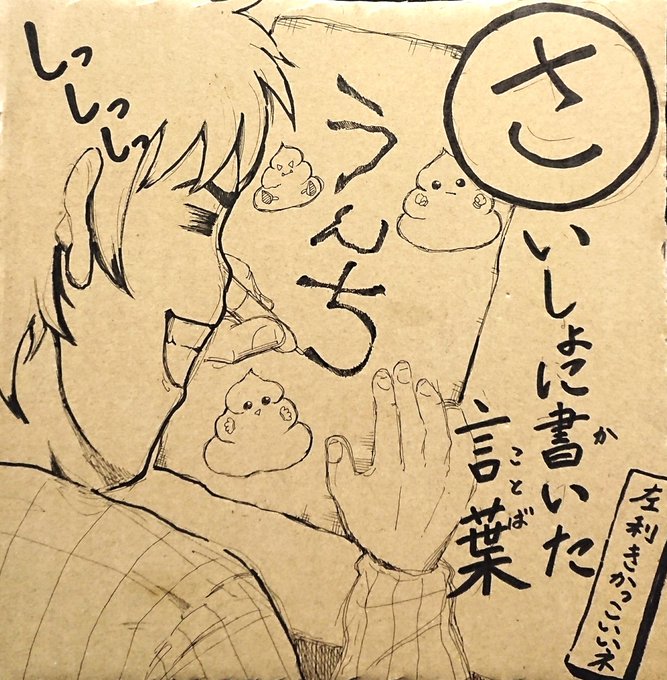 さ
いしょに書いた
か
言葉
ことば
うんち
しっ
しっ
しっ
左利きかっこいいネ